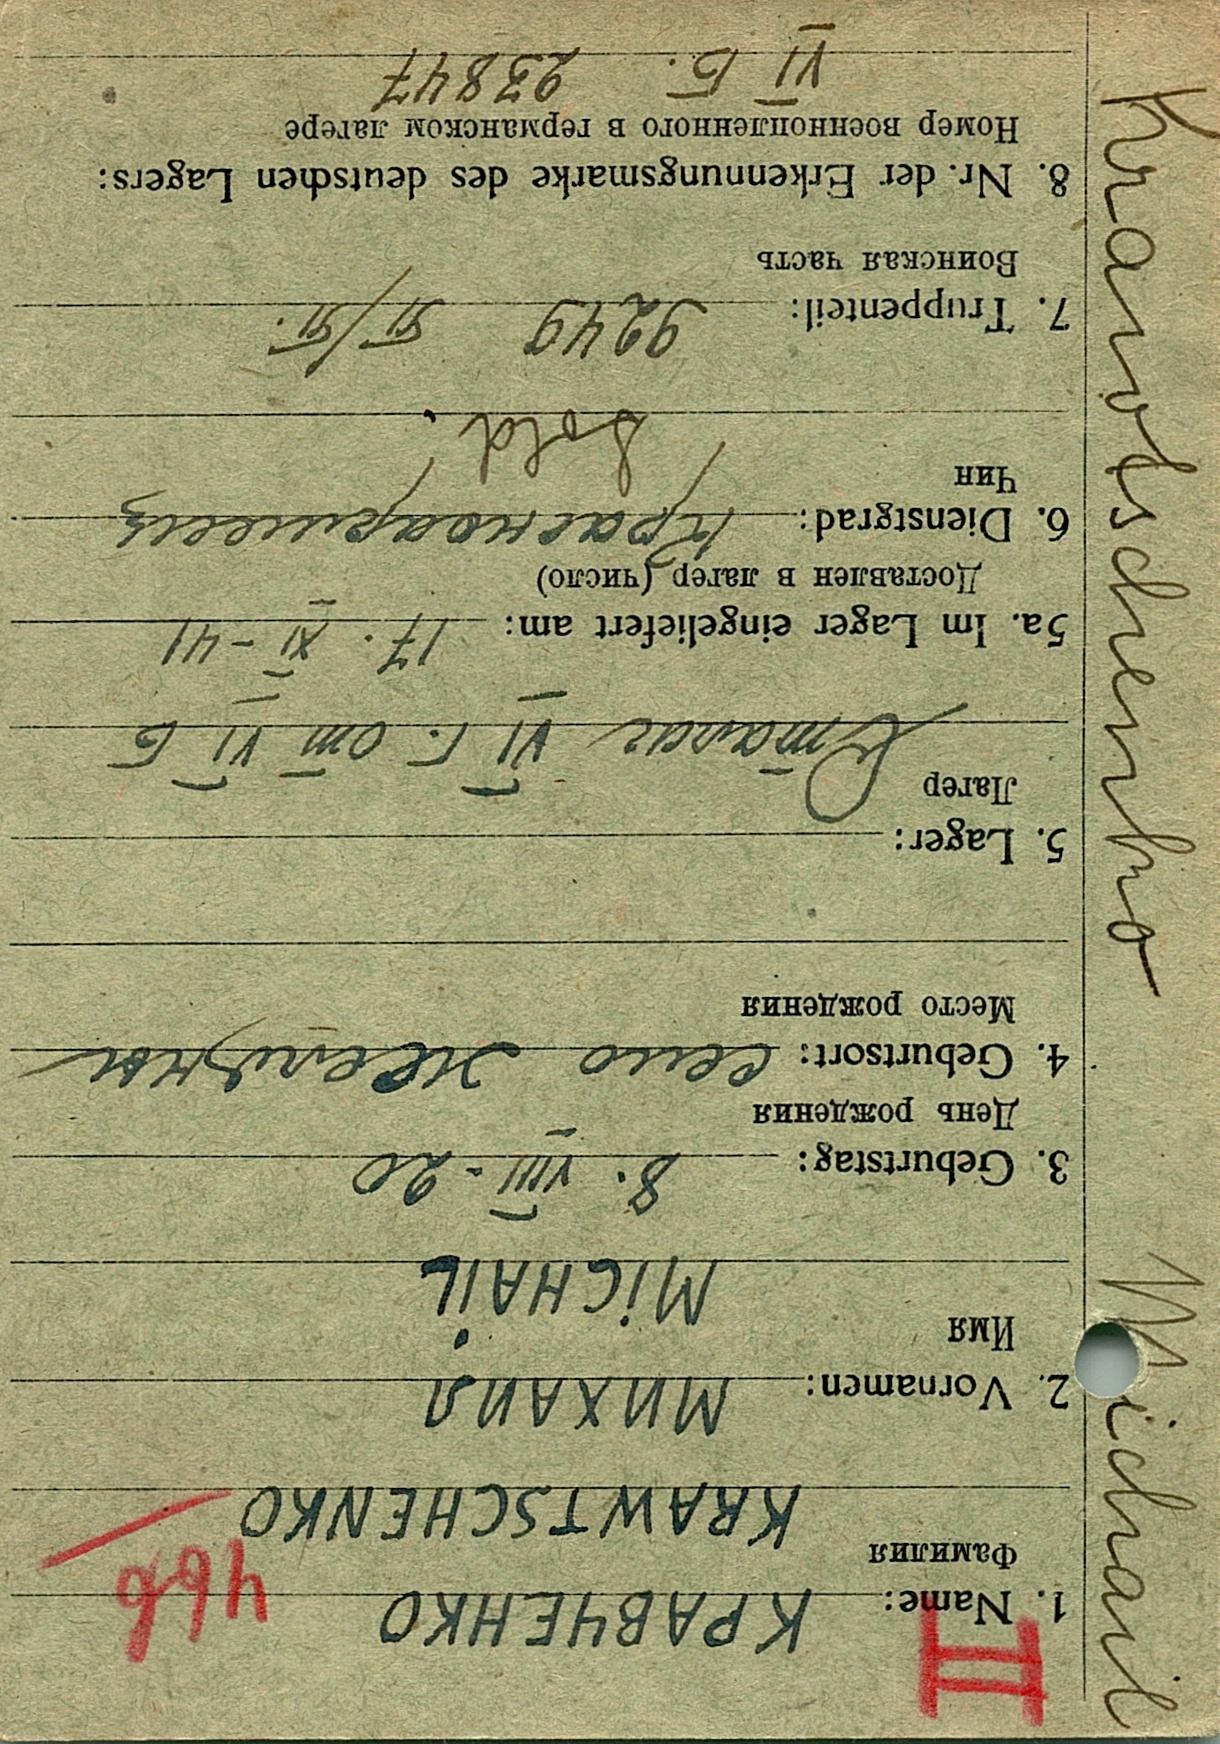 II
466
1. Name: КРАВЧЕНКО
Фамилия
KRAWTSCHENKO
2. Vornamen: МИХАИЛ
Имя
MICHAIL
3. Geburtstag: 8. VIII - 20
День рождения
4. Geburtsort: село
Место рождения
5. Lager:
Лагер
Сталаг VI Г. от VI Б
5a. Im Lager eingeliefert am: 17. XI - 41
Доставлен в лагер (число)
6. Dienstgrad: Красноармеец
Чин
Sold.
7. Truppenteil: 9249 п/п.
Воинская часть
8. Nr. der Erkennungsmarke des deutschen Lagers:
Номер военнопленного в германском лагере
VI Б. 23847
Krawtschenko Michail